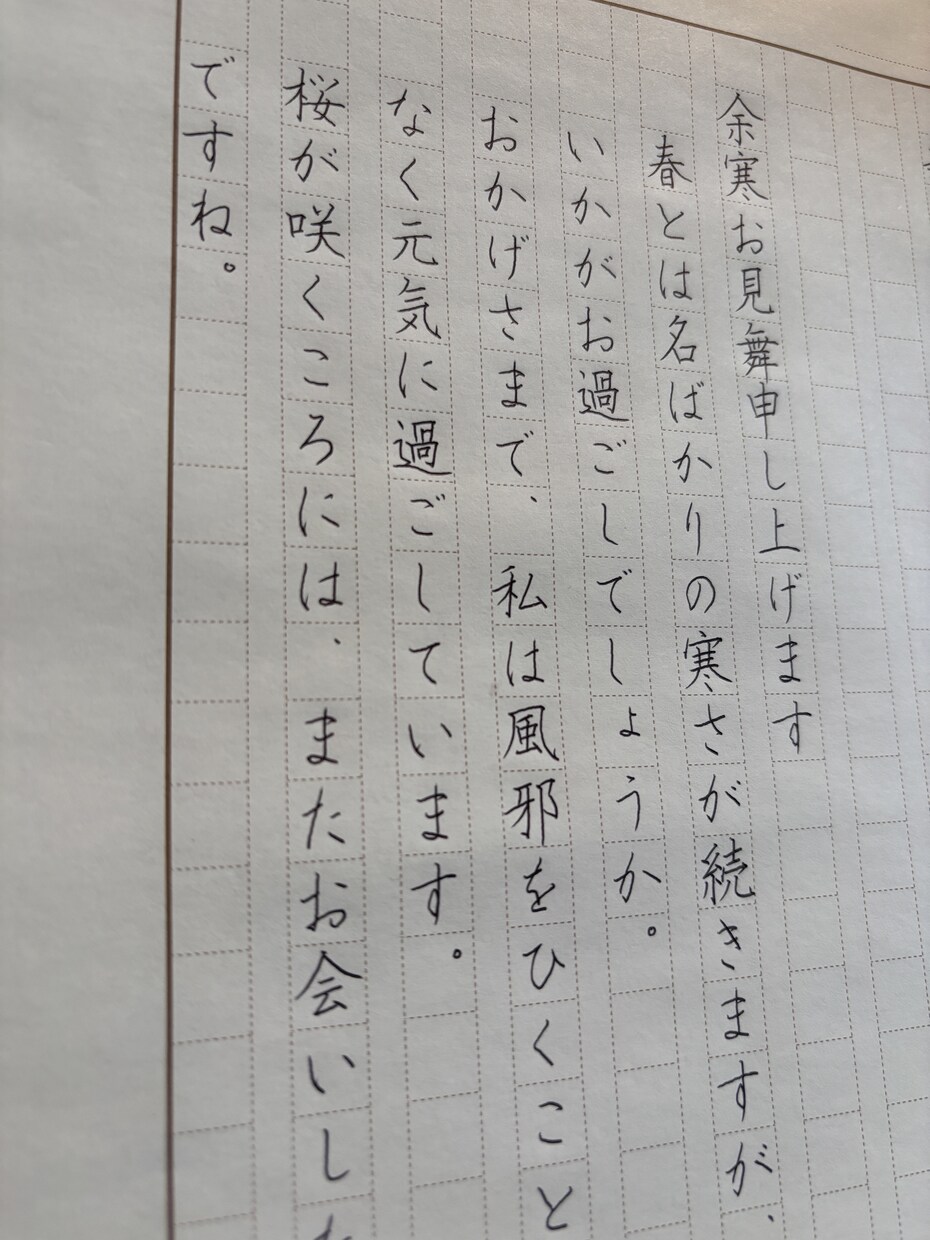 余寒お見舞申し上げます
春とは名ばかりの寒さが続きますが、
いかがお過ごしでしょうか。
おかげさまで、私は風邪をひくこと
なく元気に過ごしています。
桜が咲くころには、またお会いした
ですね。